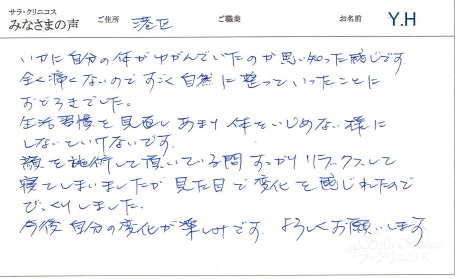 サラ・クリニコス
みなさまの声 ご住所 港区 ご職業 お名前 Y.H
いかに自分の体がゆがんでいたのか思い知った感じです。
全く痛くないのですごく自然に整っていったことに
おどろきでした。
生活習慣を見直しあまり体をいじめない様に
しないといけないです。
顔を施術して頂いている間すっかりリラックスして
寝てしまいましたが見た目で変化を感じれたので
びっくりしました。
今後自分の変化が楽しみです。よろしくお願いします
サラ・クリニコス